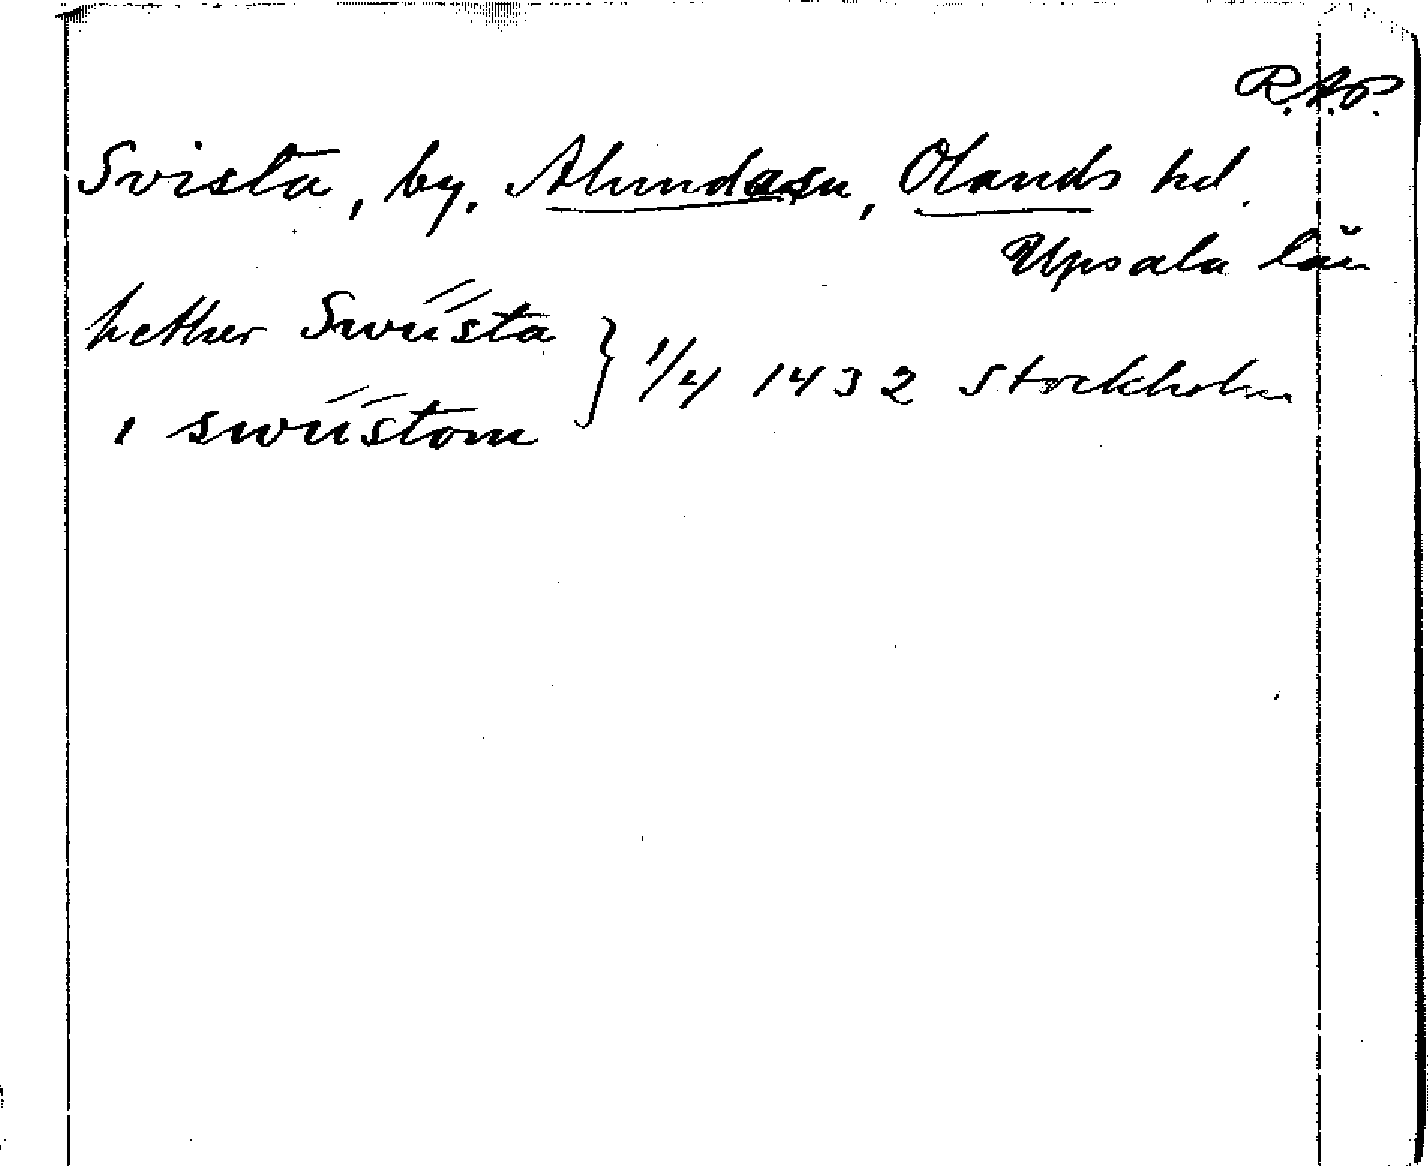 R.A.P.
Svista, by, Alunda sn, Olands hd.
Upsala län
hether Swiista
i swiistom } 1/4 1432 Stockholm